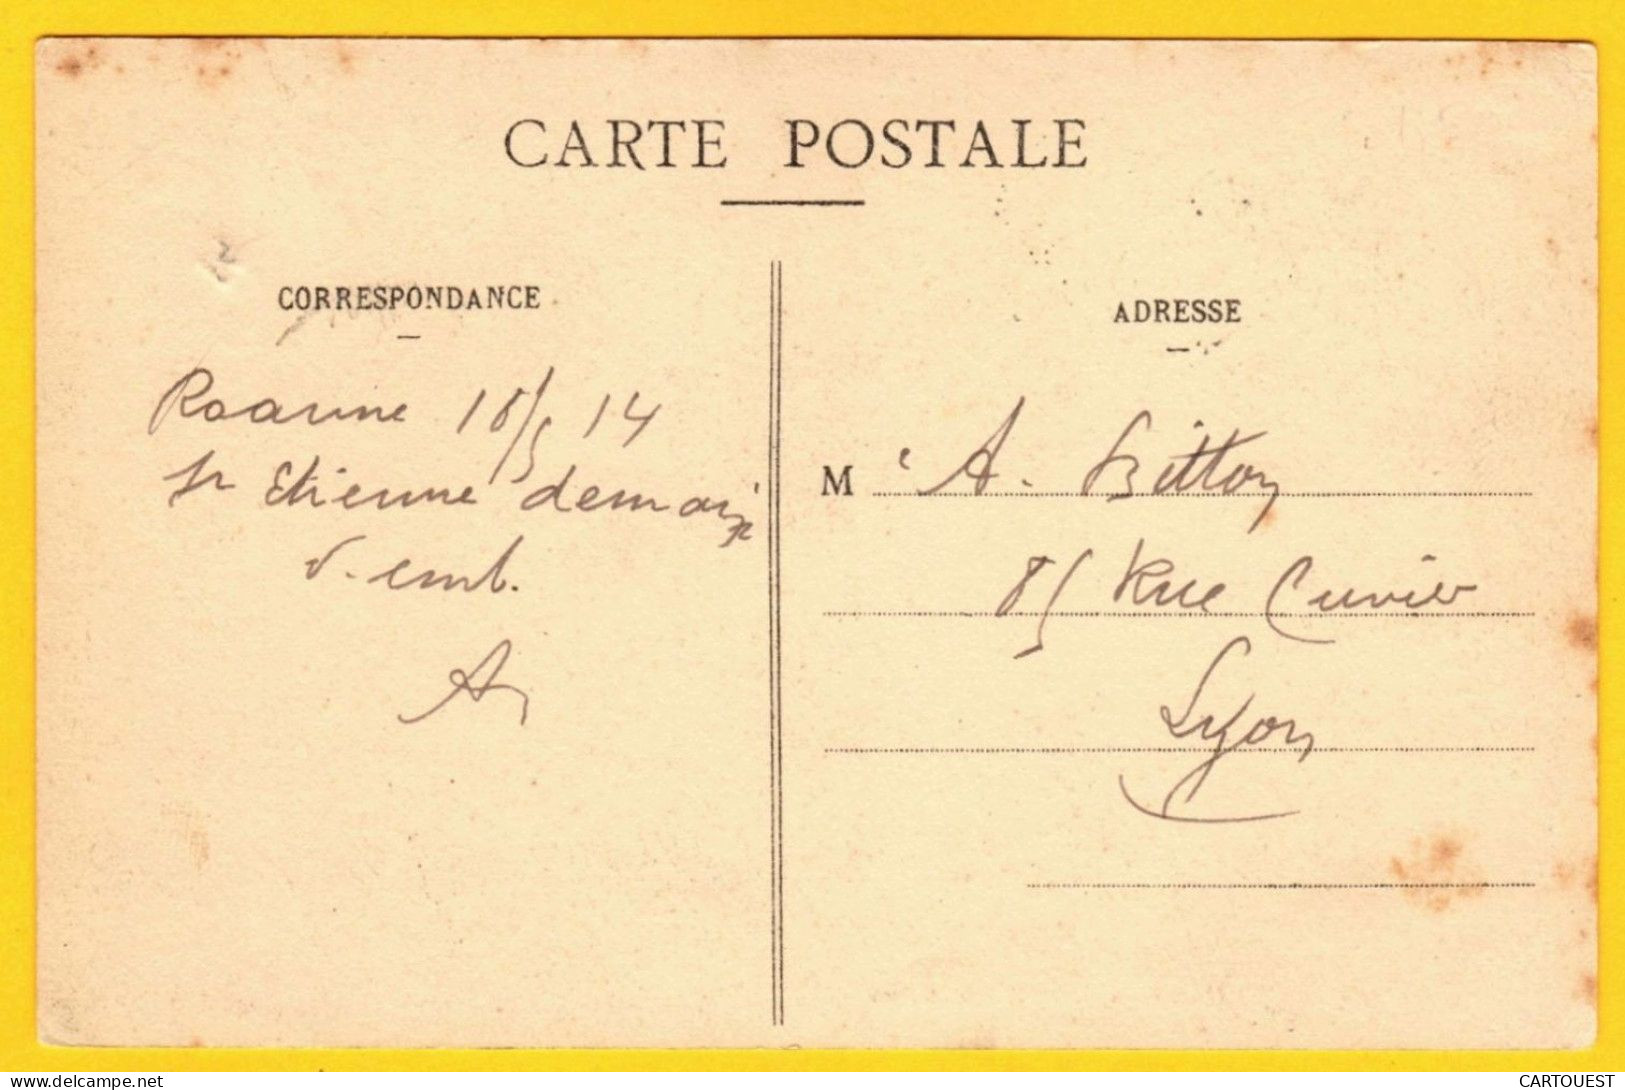 CARTE POSTALE
CORRESPONDANCE
Roanne 18/5 14
St Etienne demain
v. emb.
A
ADRESSE
M r A. Bitton
85 Rue Cuvier
Lyon
delcampe.net
CARTOUEST